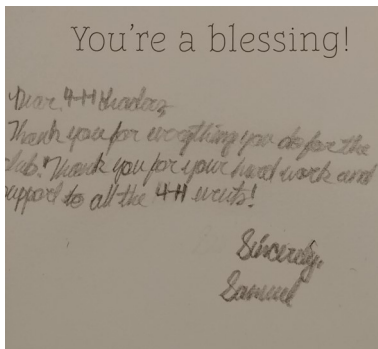 You're a blessing!
Dear, 4-H leaders,
Thank you for everything you do for the
club. Thank you for your hard work and
support to all the 4-H events!
Sincerely,
Samuel